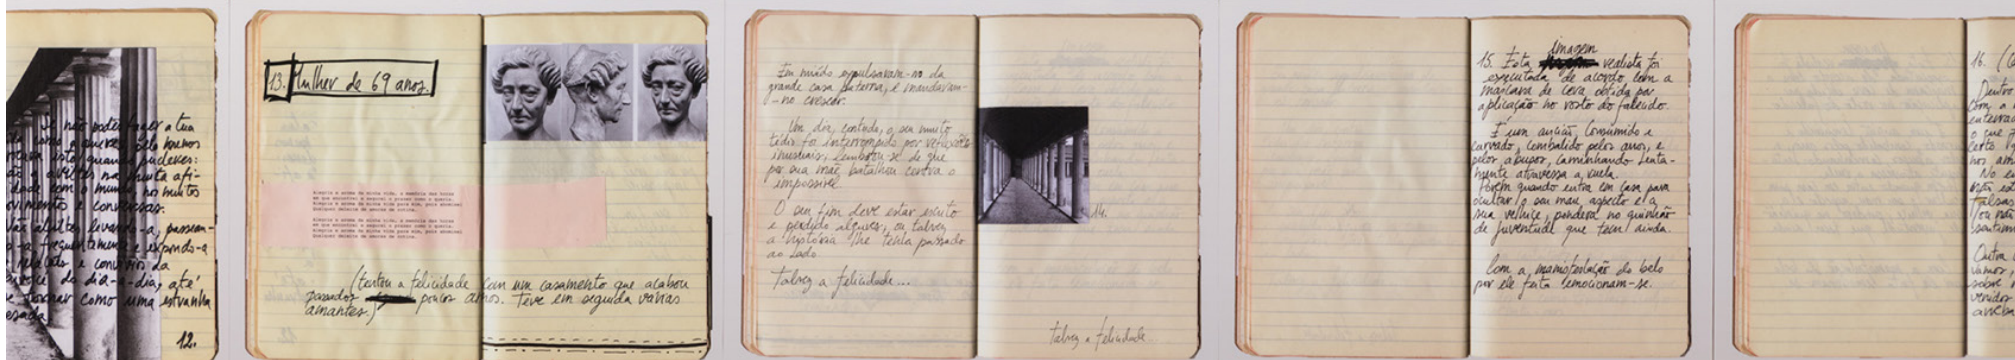 Se não podes fazer a tua
como a queres, pelo menos
isto quanto puderes:
não a aviltes na muita afi-
dade com o mundo, nos muitos
movimentos e conversas.
Não a aviltes levando-a, passean-
do-a frequentemente e expondo-a
relações e convívios da
do dia-a-dia, até
se tornar como uma estranha
pesada.
12.
13. Mulher de 69 anos.
Alegria e aroma da minha vida, a memória das horas
em que encontrei e segurei o prazer como o queria.
Alegria e aroma da minha vida para mim, pois abominei
Qualquer deleite de amores de rotina.
Alegria e aroma da minha vida, a memória das horas
em que encontrei e segurei o prazer como o queria.
Alegria e aroma da minha vida para mim, pois abominei
Qualquer deleite de amores de rotina.
(tentou a felicidade com um casamento que acabou
passados poucos anos. Teve em seguida várias
amantes.)
Em miúdo expulsaram-no da
grande casa paterna, e mandaram-
-no crescer.
Um dia, contudo, o seu muito
tédio foi interrompido por reflexões
inusuais; lembrou-se de que
por sua mãe batalhou contra o
impossível.
O seu fim deve estar escrito
e perdido algures, ou talvez
a história lhe tenha passado
ao lado.
Talvez a felicidade...
14.
talvez a felicidade...
imagem
15. Esta realista foi
executada de acordo com a
máscara de cera obtida por
aplicação no rosto do falecido.
É um ancião, consumido e
curvado, combalido pelos anos, e
pelos abusos, caminhando lenta-
mente atravessa a ruela.
Porém quando entra em casa para
ocultar o seu mau aspecto e a
sua velhice, pondera no quinhão
de juventude que tem ainda.
Com a manifestação do belo
por ele feita emocionam-se.
16.
Dentro
com a
enterrad
o que
certo
nos
No en
falsas
Outra
vamos
sobre